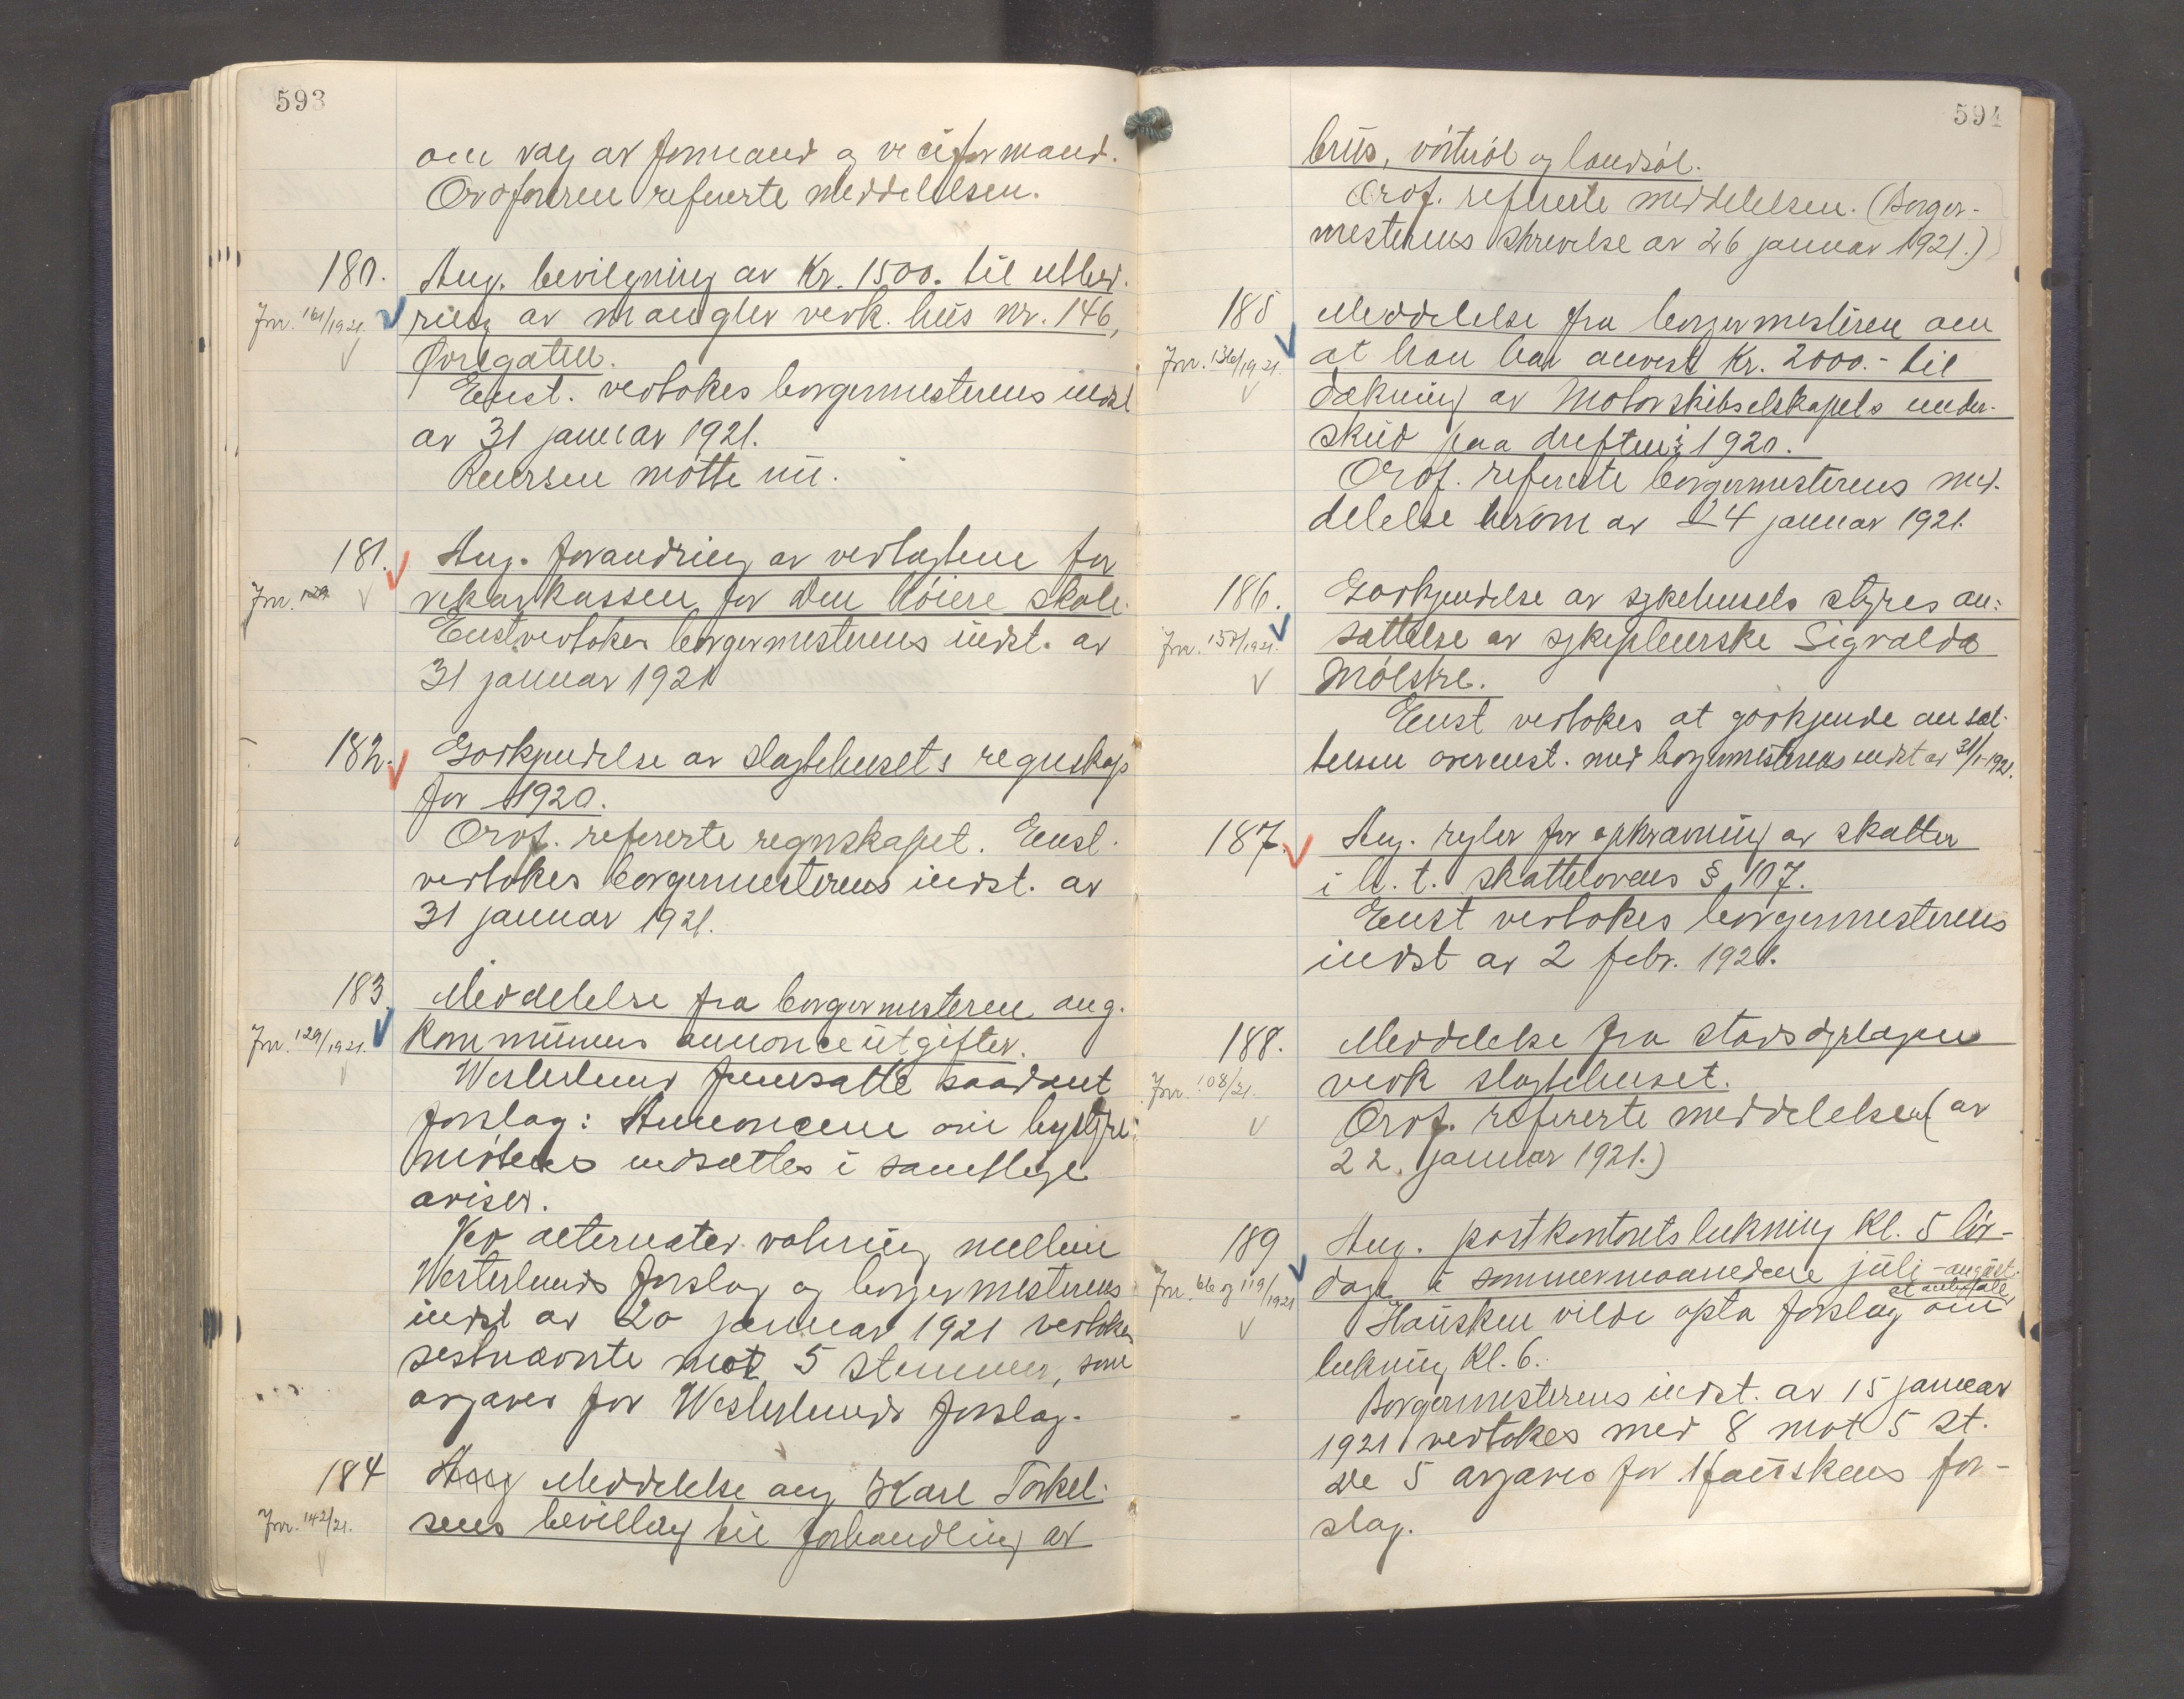 593
om valg av formand og viceformand.
Ordføreren refererte meddelelsen.
180. Ang. bevilgning av Kr. 1500.- til utbed-
Jnr. 161/1921. ring av mangler vedk. hus nr. 146,
Øvregaten.
Enst. vedtokes borgermesterens indst
av 31 januar 1921.
møtte nu.
181. Ang. forandring av vedtægtene for
Jnr. vikarkassen for den høiere skole.
Enst vedtokes borgermesterens indst. av
31 januar 1921
182. Godkjendelse av slagtehusets regnskap
for 1920.
Ordf. refererte regnskapet. Enst.
vedtokes borgermesterens indst. av
31 januar 1921.
183. Meddelelse fra borgermesteren ang.
Jnr. 129/1921. kommunens annonceutgifter.
Westerlund fremsatte saadant
forslag: Annoncene om bystyre-
møtene indsættes i samtlige
aviser.
Ved alternater votering mellem
Westerlunds forslag og borgermesterens
indst av 20 januar 1921 vedtokes
sidstnævnte mot 5 stemmer, som
avgaves for Westerlunds forslag.
184 Ang Meddelelse ang Karl Torkel-
Jnr. 142/21. sens bevilling til forhandling av
594
brus, vørterøl og landsøl.
Ordf. refererte meddelelsen. (Borger-
mesterens skrivelse av 26 januar 1921.)
185 Meddelelse fra borgermesteren om
Jnr. 136/1921. at han har anvist Kr. 2000.- til
dækning av Motorskibselskapets under-
skud paa driften i 1920.
Ordf. refererte borgermesterens med-
delelse herom av 24 januar 1921.
186. Godkjendelse av sykehusets styres an-
Jnr. 157/1921. sættelse av sykepleierske Sigvalda
Mølstre.
Enst vedtokes at godkjende ansæt-
telsen overenst. med borgermesterens indst av 31/1-1921.
187. Ang. regler for opkrævning av skatter
i h. t. skattelovens § 107.
Enst vedtokes borgermesterens
indst av 2 febr. 1921.
188. Meddelelse fra stadsdyrlægen
Jnr. 108/21. vedk slagtehuset.
Ordf. refererte meddelelsen (av
22. januar 1921.)
189 Ang. postkontorets lukning kl. 5 lør-
Jnr. 66 og 119/1921 dage i sommermaanedene juli - august.
Hausken vilde opta forslag at anbefale om
lukning kl. 6.
Borgermesterens indst. av 15 januar
1921 vedtokes med 8 mot 5 st.
De 5 avgaves for Hauskens for-
slag.